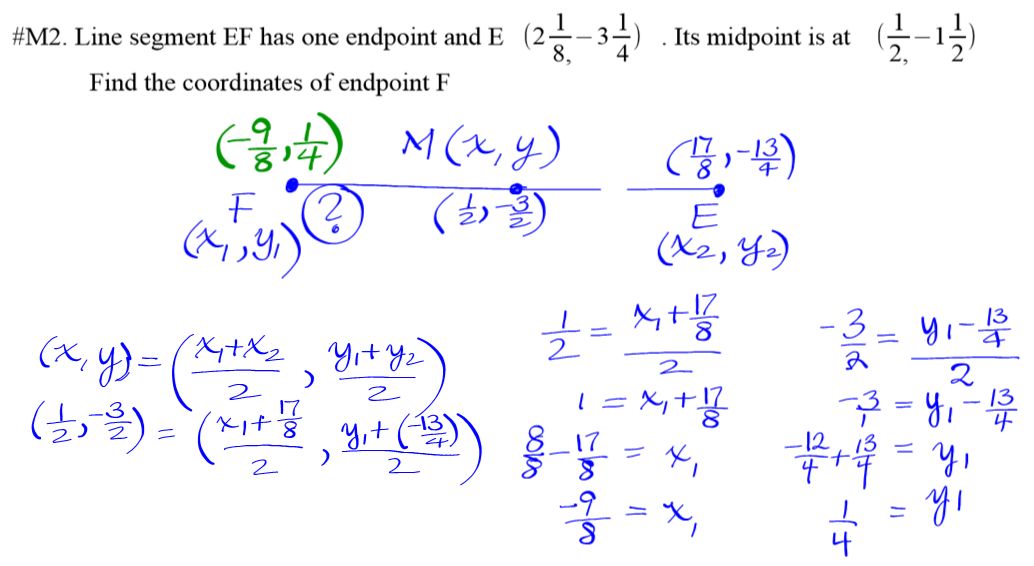 #M2. Line segment EF has one endpoint and E (2 1/8, −3 1/4) . Its midpoint is at (1/2, −1 1/2)
Find the coordinates of endpoint F
(-9/8, 1/4) M(x, y) (17/8, -13/4)
F ? (1/2, -3/2) E
(x₁, y₁) (x₂, y₂)
(x, y) = ((x₁+x₂)/2, (y₁+y₂)/2)
(1/2, -3/2) = ((x₁+17/8)/2, (y₁+(-13/4))/2)
1/2 = (x₁+17/8)/2
1 = x₁+17/8
8/8 - 17/8 = x₁
-9/8 = x₁
-3/2 = (y₁-13/4)/2
-3/1 = y₁-13/4
-12/4 + 13/4 = y₁
1/4 = y₁